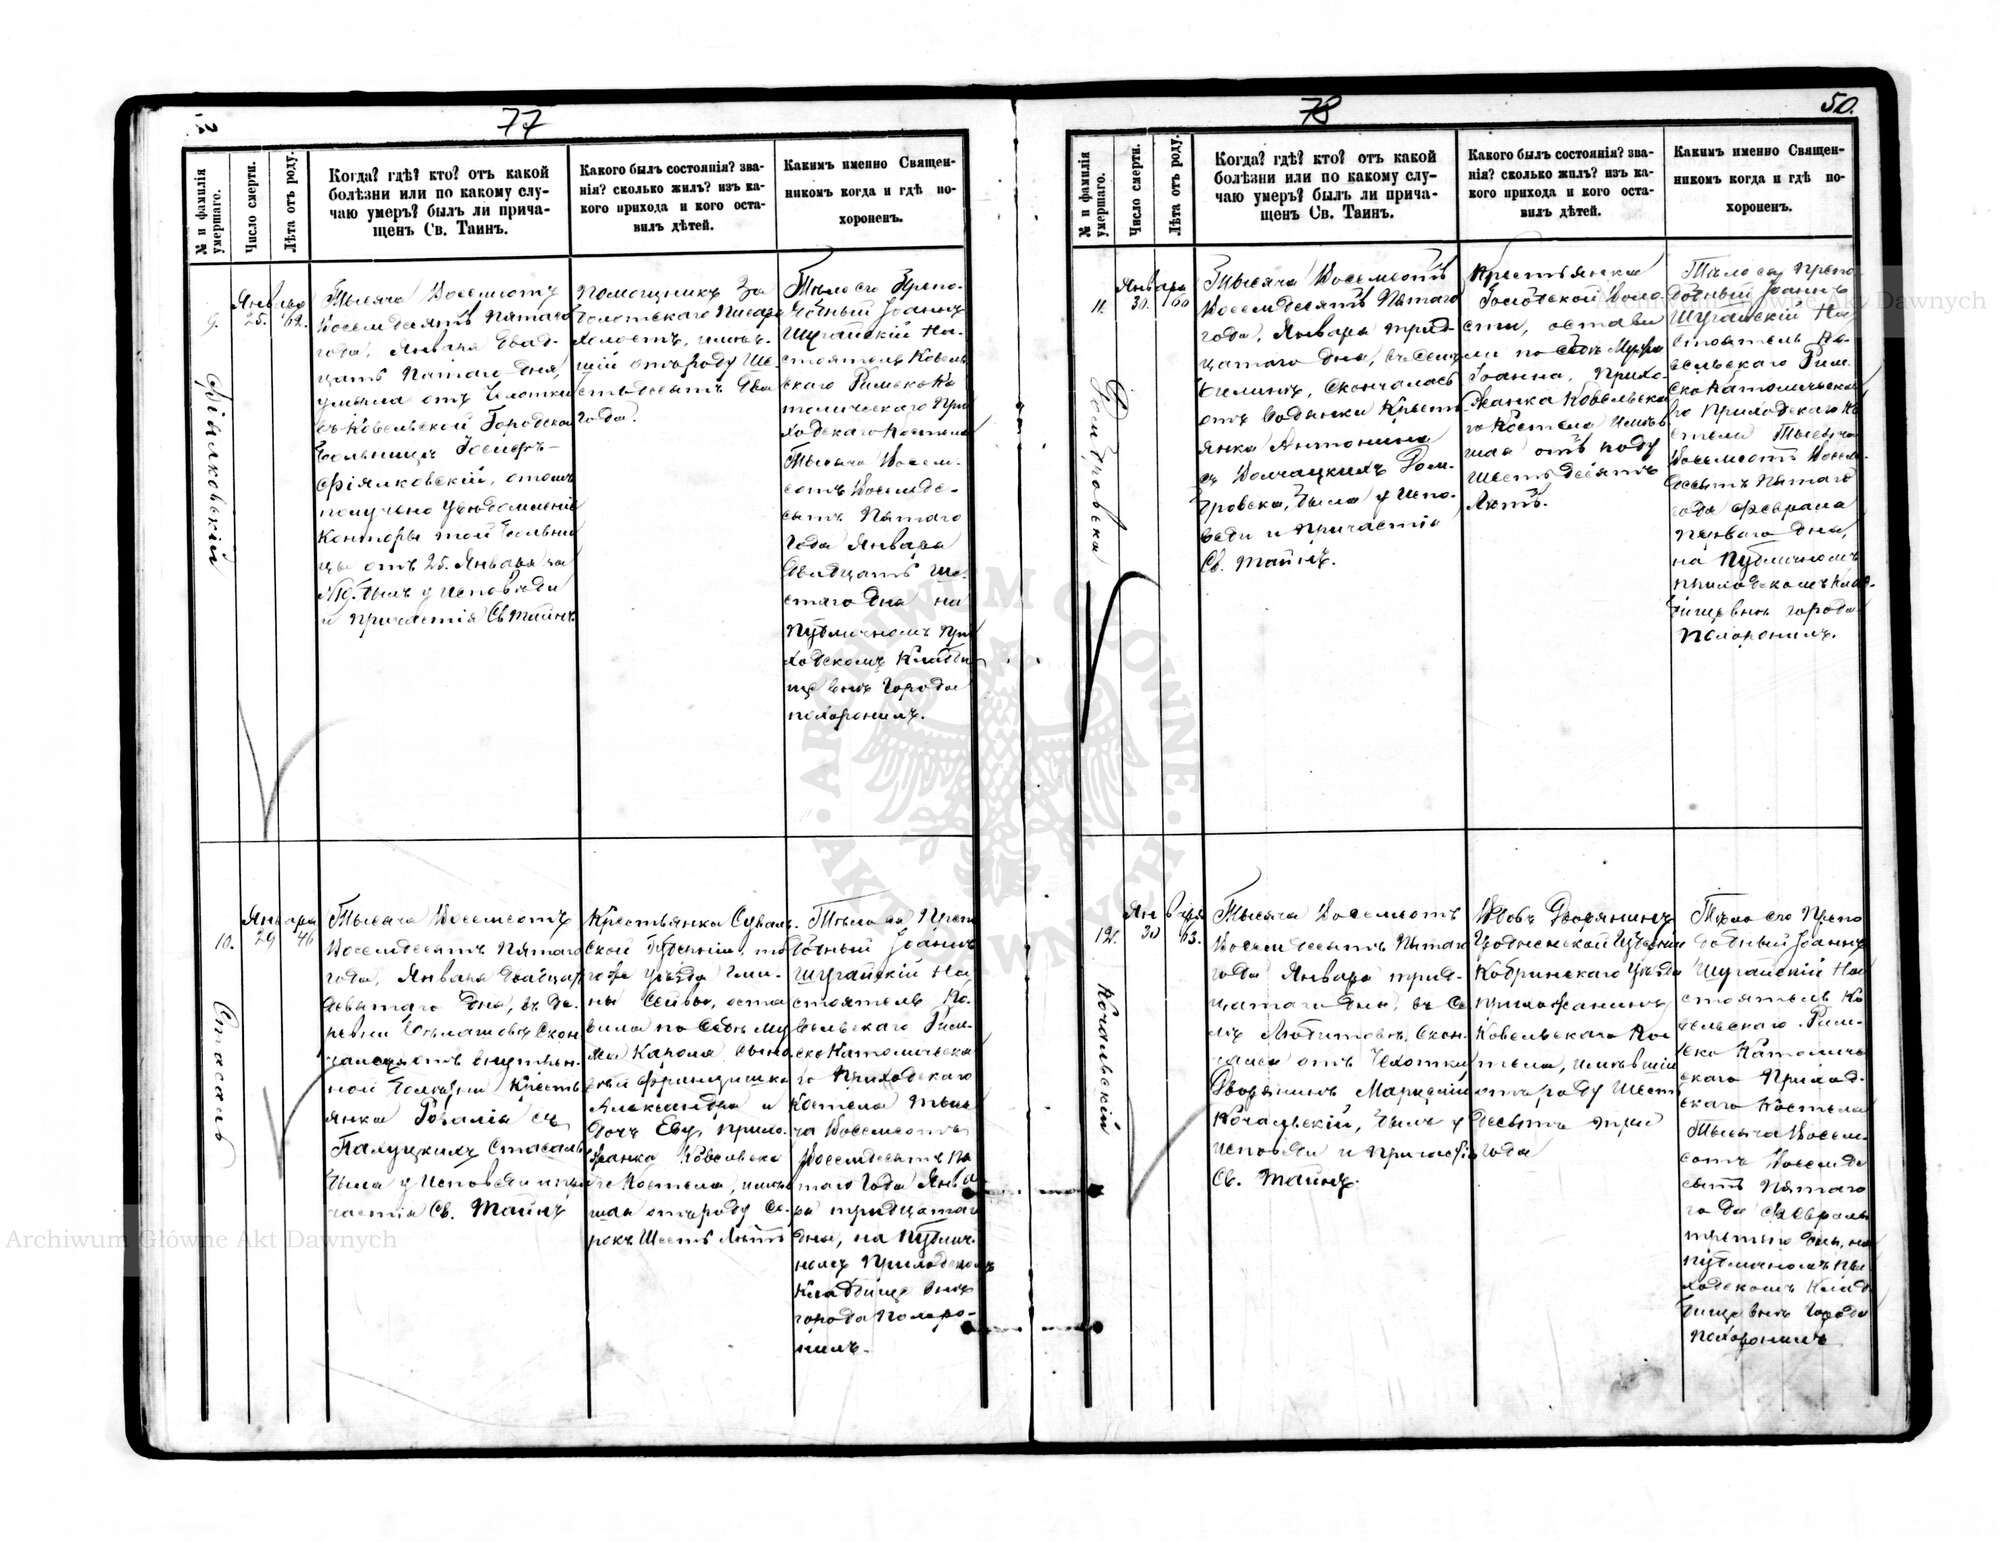 77
№ и фамилія умершаго.
Число смерти.
Лѣта отъ роду.
Когда? гдѣ? кто? отъ какой
болѣзни или по какому слу-
чаю умеръ? былъ ли прича-
щенъ Св. Таинъ.
Какого былъ состоянія? зва-
нія? сколько жилъ? изъ ка-
кого прихода и кого оста-
вилъ дѣтей.
Каким именно Священ-
никомъ когда и гдѣ по-
хороненъ.
9.
Фіялковьскій
Января
25. 62.
Тысяча Восемсотъ
Восемдесятъ Пятаго
года, Января двад-
цать Пятаго дня,
отъ Чахотки
въ Ковельской Городской
Больницѣ Іосифъ
Фіялковскій, о томъ
получено увѣдомленіе
Конторы той Больни
цы отъ 25. Января за
былъ у исповѣди
и причастія Св Тайнъ
Помощникъ За
Писаря
холостъ, имѣв-
шій отъ роду Ше-
стьдесятъ два
года.
Тѣло его Препо-
добный Іоаннъ
Шугайскій На-
стоятель Ковель
скаго Римско Ка
толическаго При
ходскаго Костела
Тысяча Восем-
сотъ Восемде-
сятъ Пятаго
года Января
двадцать ше-
стаго дня на
Публичномъ При
ходскомъ Кладби
ще внѣ города
похоронилъ.
10.
Стасаль
Января
29 46
Тысяча Восемсотъ
Восемдесятъ Пятаго
года, Января двадцать
девятаго дня, въ де-
ревни Скон
чалась отъ внутрен-
ной болѣзни Кресть
янка Розалія съ
Палуцкихъ Стасаль
была у исповѣди и при
частія Св. Тайнъ
Крестьянка Суваль
ской Губерніи, то
го же уѣзда Гми-
ны Сейвы, оста
вила по себѣ му
жа Кароля, сыно
вей Францишка
Александра и
дочь Еву, прихо-
жанка Ковельска
го Костела, имѣв
шая отъ роду Со-
рокъ Шесть Лѣтъ
Тѣло ея Препо
добный Іоаннъ
Шугайскій На
стоятель Ко-
вельскаго Рим-
ско Католическа
го Приходскаго
Костела тыся
ча Восемсотъ
Восемдесятъ Пя
таго года Янва
ря тридцатаго
дня, на Публич-
номъ Приходскомъ
Кладбище внѣ
города Похоро-
нилъ.
78
50.
№ и фамилія умершаго.
Число смерти.
Лѣта отъ роду.
Когда? гдѣ? кто? отъ какой
болѣзни или по какому слу-
чаю умеръ? былъ ли прича-
щенъ Св. Таинъ.
Какого былъ состоянія? зва-
нія? сколько жилъ? изъ ка-
кого прихода и кого оста-
вилъ дѣтей.
Каким именно Священ-
никомъ когда и гдѣ по-
хороненъ.
11.
Домбровска
Января
30. 60
Тысяча Восемсотъ
Восемдесятъ Пятаго
года, Января трид-
цатаго дня, въ селѣ
скончалась
отъ Водянки Кресть
янка Антонина
съ Домб-
ровска, была у испо-
веди и причастія
Св. Тайнъ.
Крестьянка
Воло
сти, остави
ла по себѣ Мужа
Іоанна, прихо-
жанка Ковельска
го Костела имѣв
шая отъ роду
шестьдесятъ
лѣтъ.
Тѣло ея Препо
добный Іоаннъ
Шугайскій На
стоятель Ко-
вельскаго Рим-
ско Католическа
го Приходскаго Ко
стела Тысяча
Восемсотъ Восем
десятъ Пятаго
года Февраля
перваго дня,
на Публичномъ
приходскомъ Клад-
бище внѣ города
Похоронилъ.
12.
Кочальскій
Января
30 63.
Тысяча Восемсотъ
Восемдесятъ Пятаго
года Января трид-
цатаго дня, въ Се
лѣ Любитовѣ, Скон-
чался отъ Чахотки
Дворянинъ
Кочальскій, былъ у
исповѣди и причастія
Св. Тайнъ.
Вдовъ Дворянинъ
Гродненской Губерніи
Кобринскаго Уѣзда
прихожанинъ
Ковельскаго Кос
тела, имѣвшій
отъ роду Шесть
десятъ три
года
Тѣло его Препо
добный Іоаннъ
Шугайскій На
стоятель Ко
вельскаго Рим-
ско Католиче
скаго Приход-
скаго Костела
Тысяча Восем-
сотъ Восемде
сятъ Пятаго
года Февраля
третьяго дня, на
публичномъ при
ходскомъ Клад
бище внѣ города
Похоронилъ
ARCHIWUM GŁÓWNE AKT DAWNYCH
Archiwum Główne Akt Dawnych
Archiwum Główne Akt Dawnych